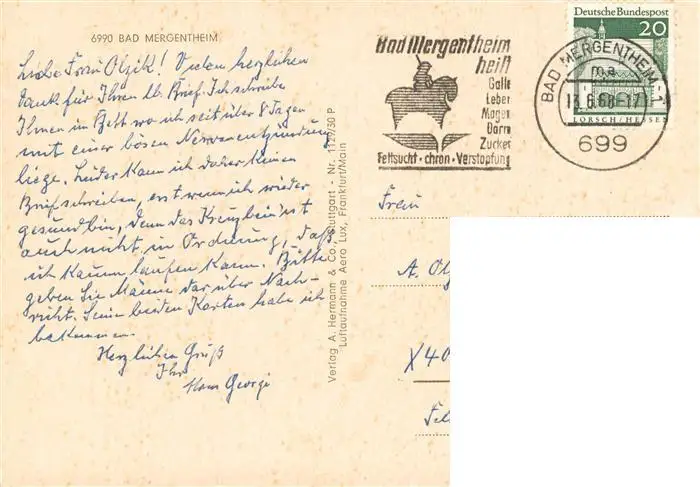 6990 BAD MERGENTHEIM
Liebe Frau Olzik! Vielen herzlichen
Dank für Ihren lb. Brief. Ich schreibe
Ihnen im Bett wo ich seit über 8 Tagen
mit einer bösen Nervenentzündung
liege. Leider kann ich daher keinen
Brief schreiben, erst wenn ich wieder
gesund bin, denn das Kreuzbein ist
auch nicht in Ordnung, daß
ich kaum laufen kann. Bitte
geben Sie Männe darüber Nach-
richt. Seine beiden Karten habe ich
bekommen.
Herzlichen Gruß
Ihr
Hans Georgi
Verlag A. Hermann & Co., Stuttgart - Nr. 1129/30 P
Luftaufnahme Aero Lux, Frankfurt/Main
Bad Mergentheim
heilt
Galle
Leber
Magen
Darm
Zucker
Fettsucht · chron · Verstopfung
BAD MERGENTHEIM 1
ma
13.6.68-17
699
Deutsche Bundespost
20
LORSCH/HESSEN
Frau
A. Ol
X40